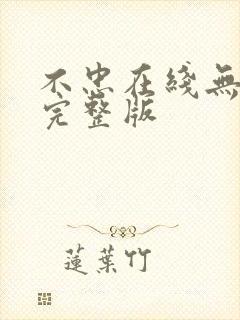 不忠在綫無
完整版
蓮葉竹